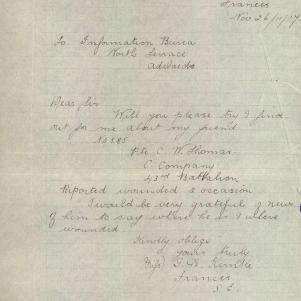 Frances
Nov. 26/11/17
To Information Bureau
North Terrace
Adelaide
Dear Sir
Will you please try & find
out for me about my friend
No 585
Pte C. W. Thomas
C Company
43rd Battalion
Reported wounded 2 occasion
I would be very grateful if news
of him to say where he is & where
wounded.
Kindly oblige
yours truly
Frances
S. E.